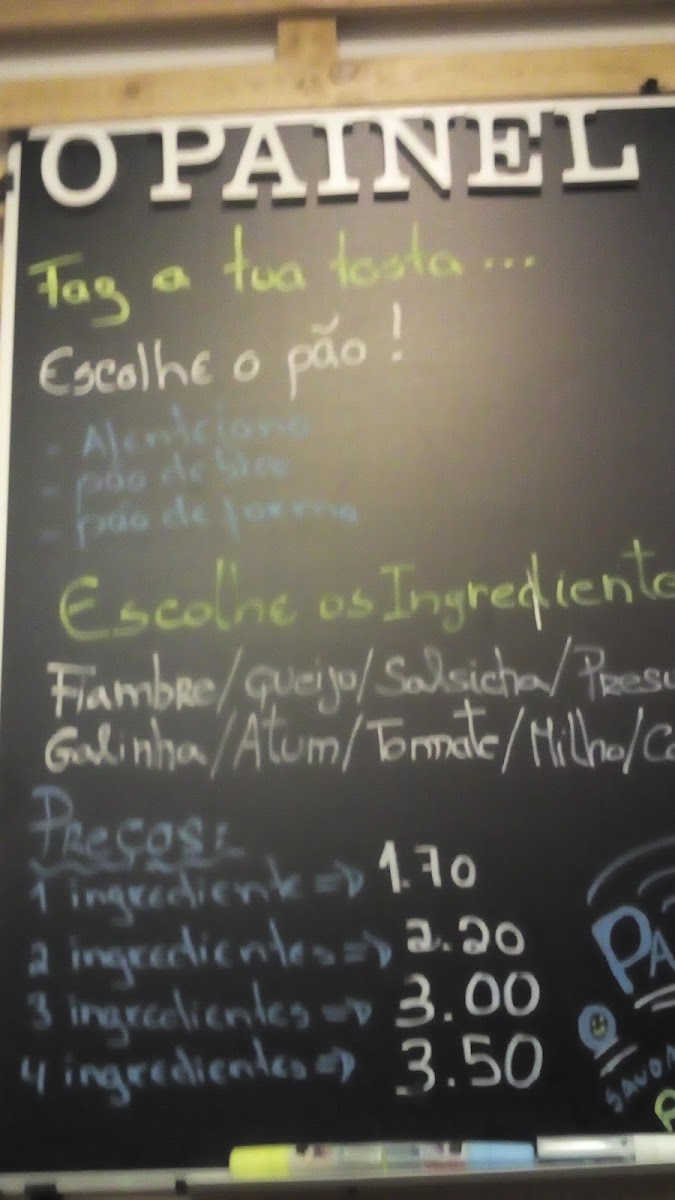 O PAINEL
Faz a tua tosta...
Escolhe o pão!
- Alentejano
- pão de bico
- pão de forma
Escolhe os Ingrediente
Fiambre/Queijo/Salsicha/Presu
Galinha/Atum/Tomate/Milho/Co
Preços:
1 ingrediente => 1.70
2 ingredientes => 2.20
3 ingredientes => 3.00
4 ingredientes => 3.50
PA